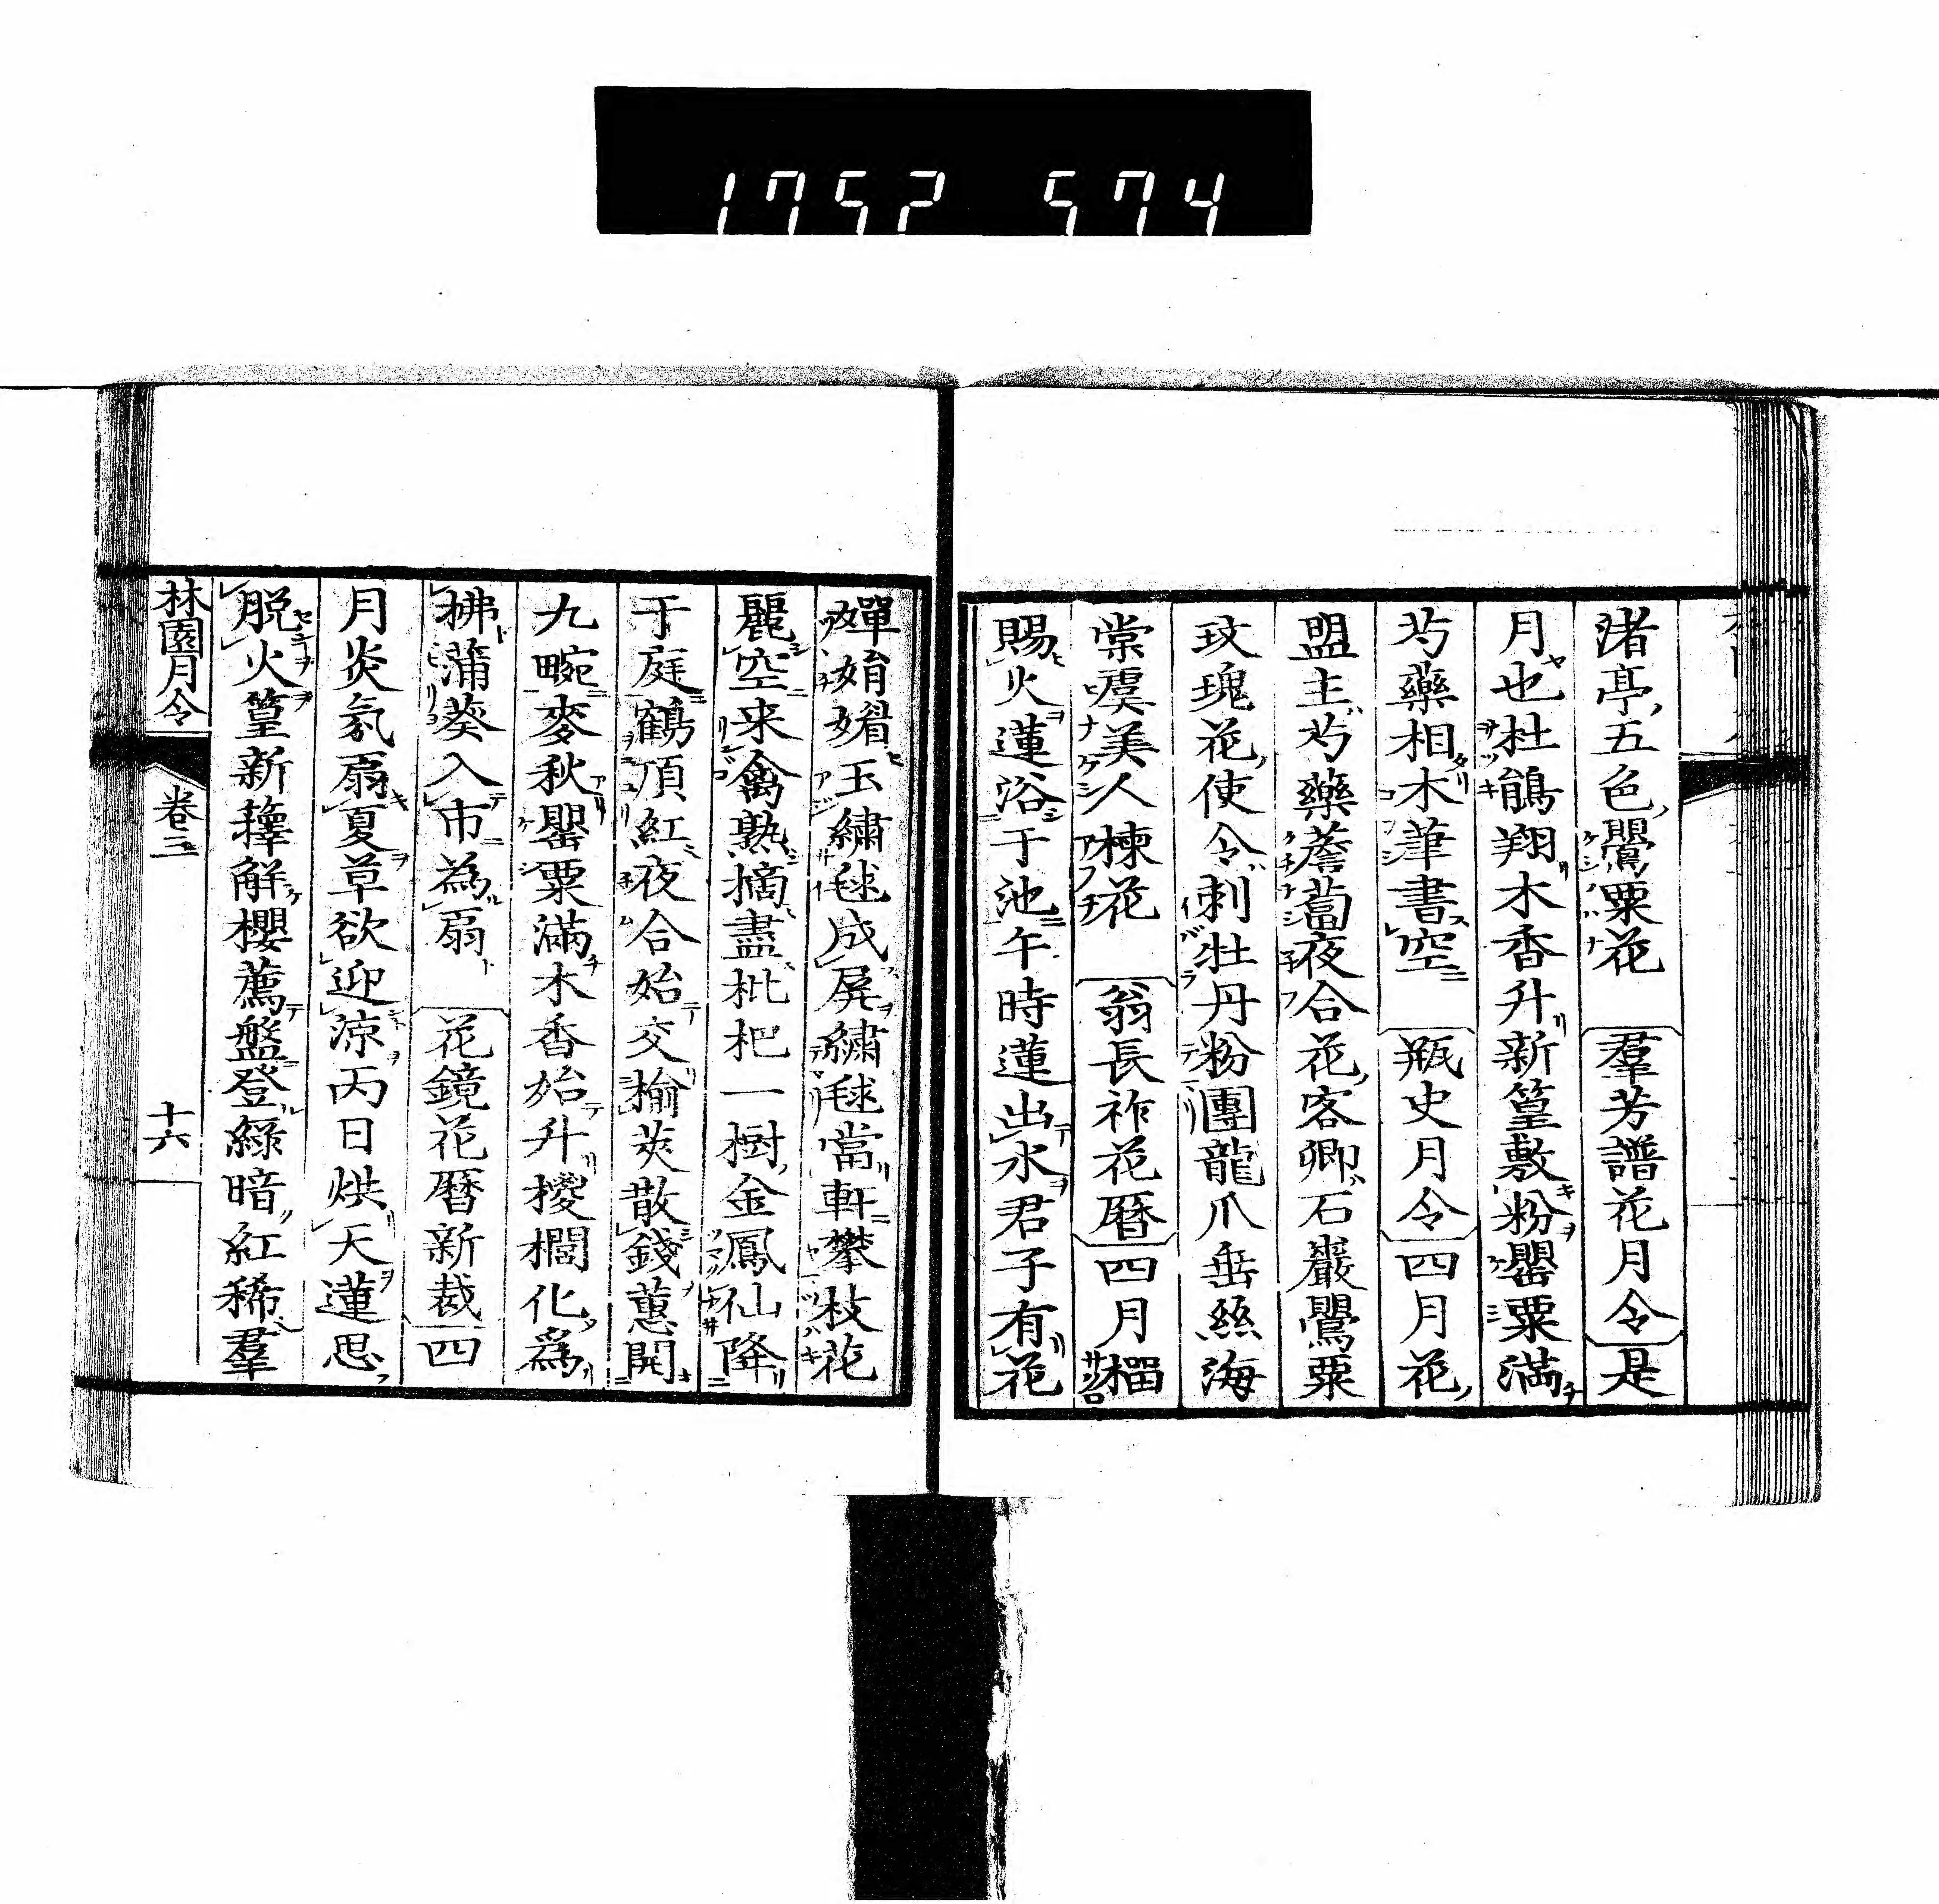 1752 574
渚亭五色罌粟花羣芳譜花月令是
月也杜鵑翔木香升新篁敷粉罌粟滿
芍藥相木筆書空瓶史月令四月花
盟主芍藥薝蔔夜合花客卿石巖罌粟
玫瑰花使令刺牡丹粉團龍爪垂絲海
棠虞美人楝花翁長祚花曆四月榴
賜火蓮浴于池午時蓮出水君子有花
嬋娟媚玉繡毬成屏繡毬當軒攀枝花
麗空来禽熟摘盡枇杷一樹金鳳仙降
于庭鶴頂紅夜合始交榆莢散錢蕙開
九畹麥秋罌粟滿木香始升櫻櫊化為
拂蒲葵入市為扇花鏡花曆新裁四
月炎氣扇夏草欲迎涼丙日烘天蓮思
脱火篁新籜解櫻薦盤登綠暗紅稀羣
林園月令
卷三
十六